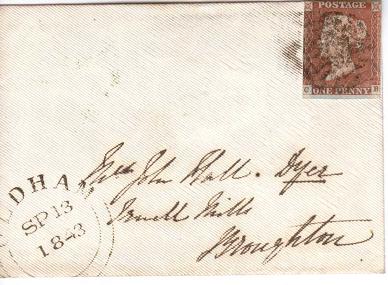 POSTAGE
ONE PENNY
LDHA
SP 13
1843
John Hall. Dyer
Irwell Mills
Broughton